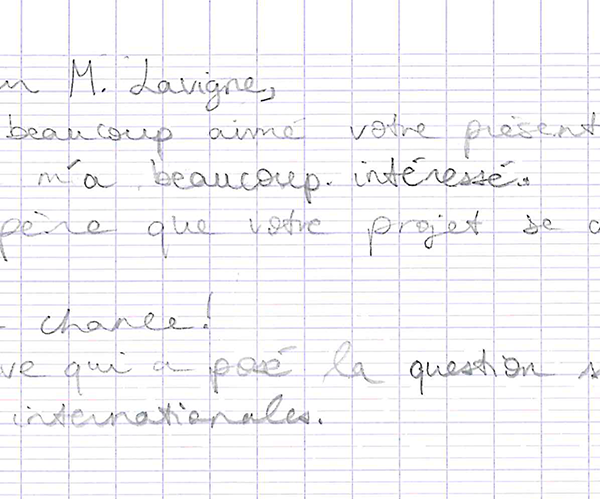 M. Lavigne,
beaucoup aimé votre présent
m'a beaucoup. intéressé.
père que votre projet se
chance!
ve qui a posé la question s
internationales.